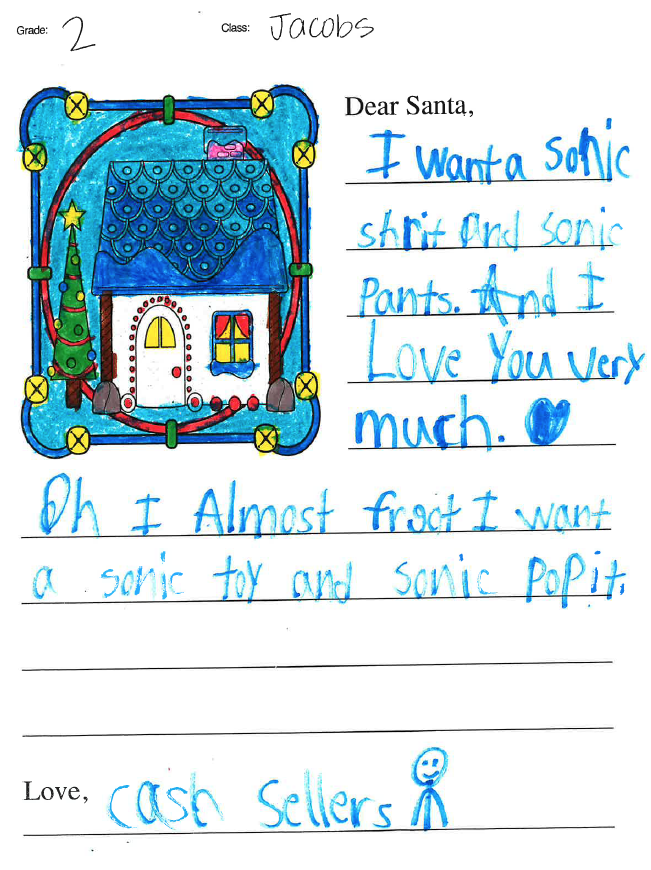 Grade: 2 Class: Jacobs
Dear Santa,
I want a sonic
shrit and sonic
pants. And I
Love You very
much.
Oh I Almost frgot I want
a sonic toy and sonic PoPit.
Love, cash Sellers